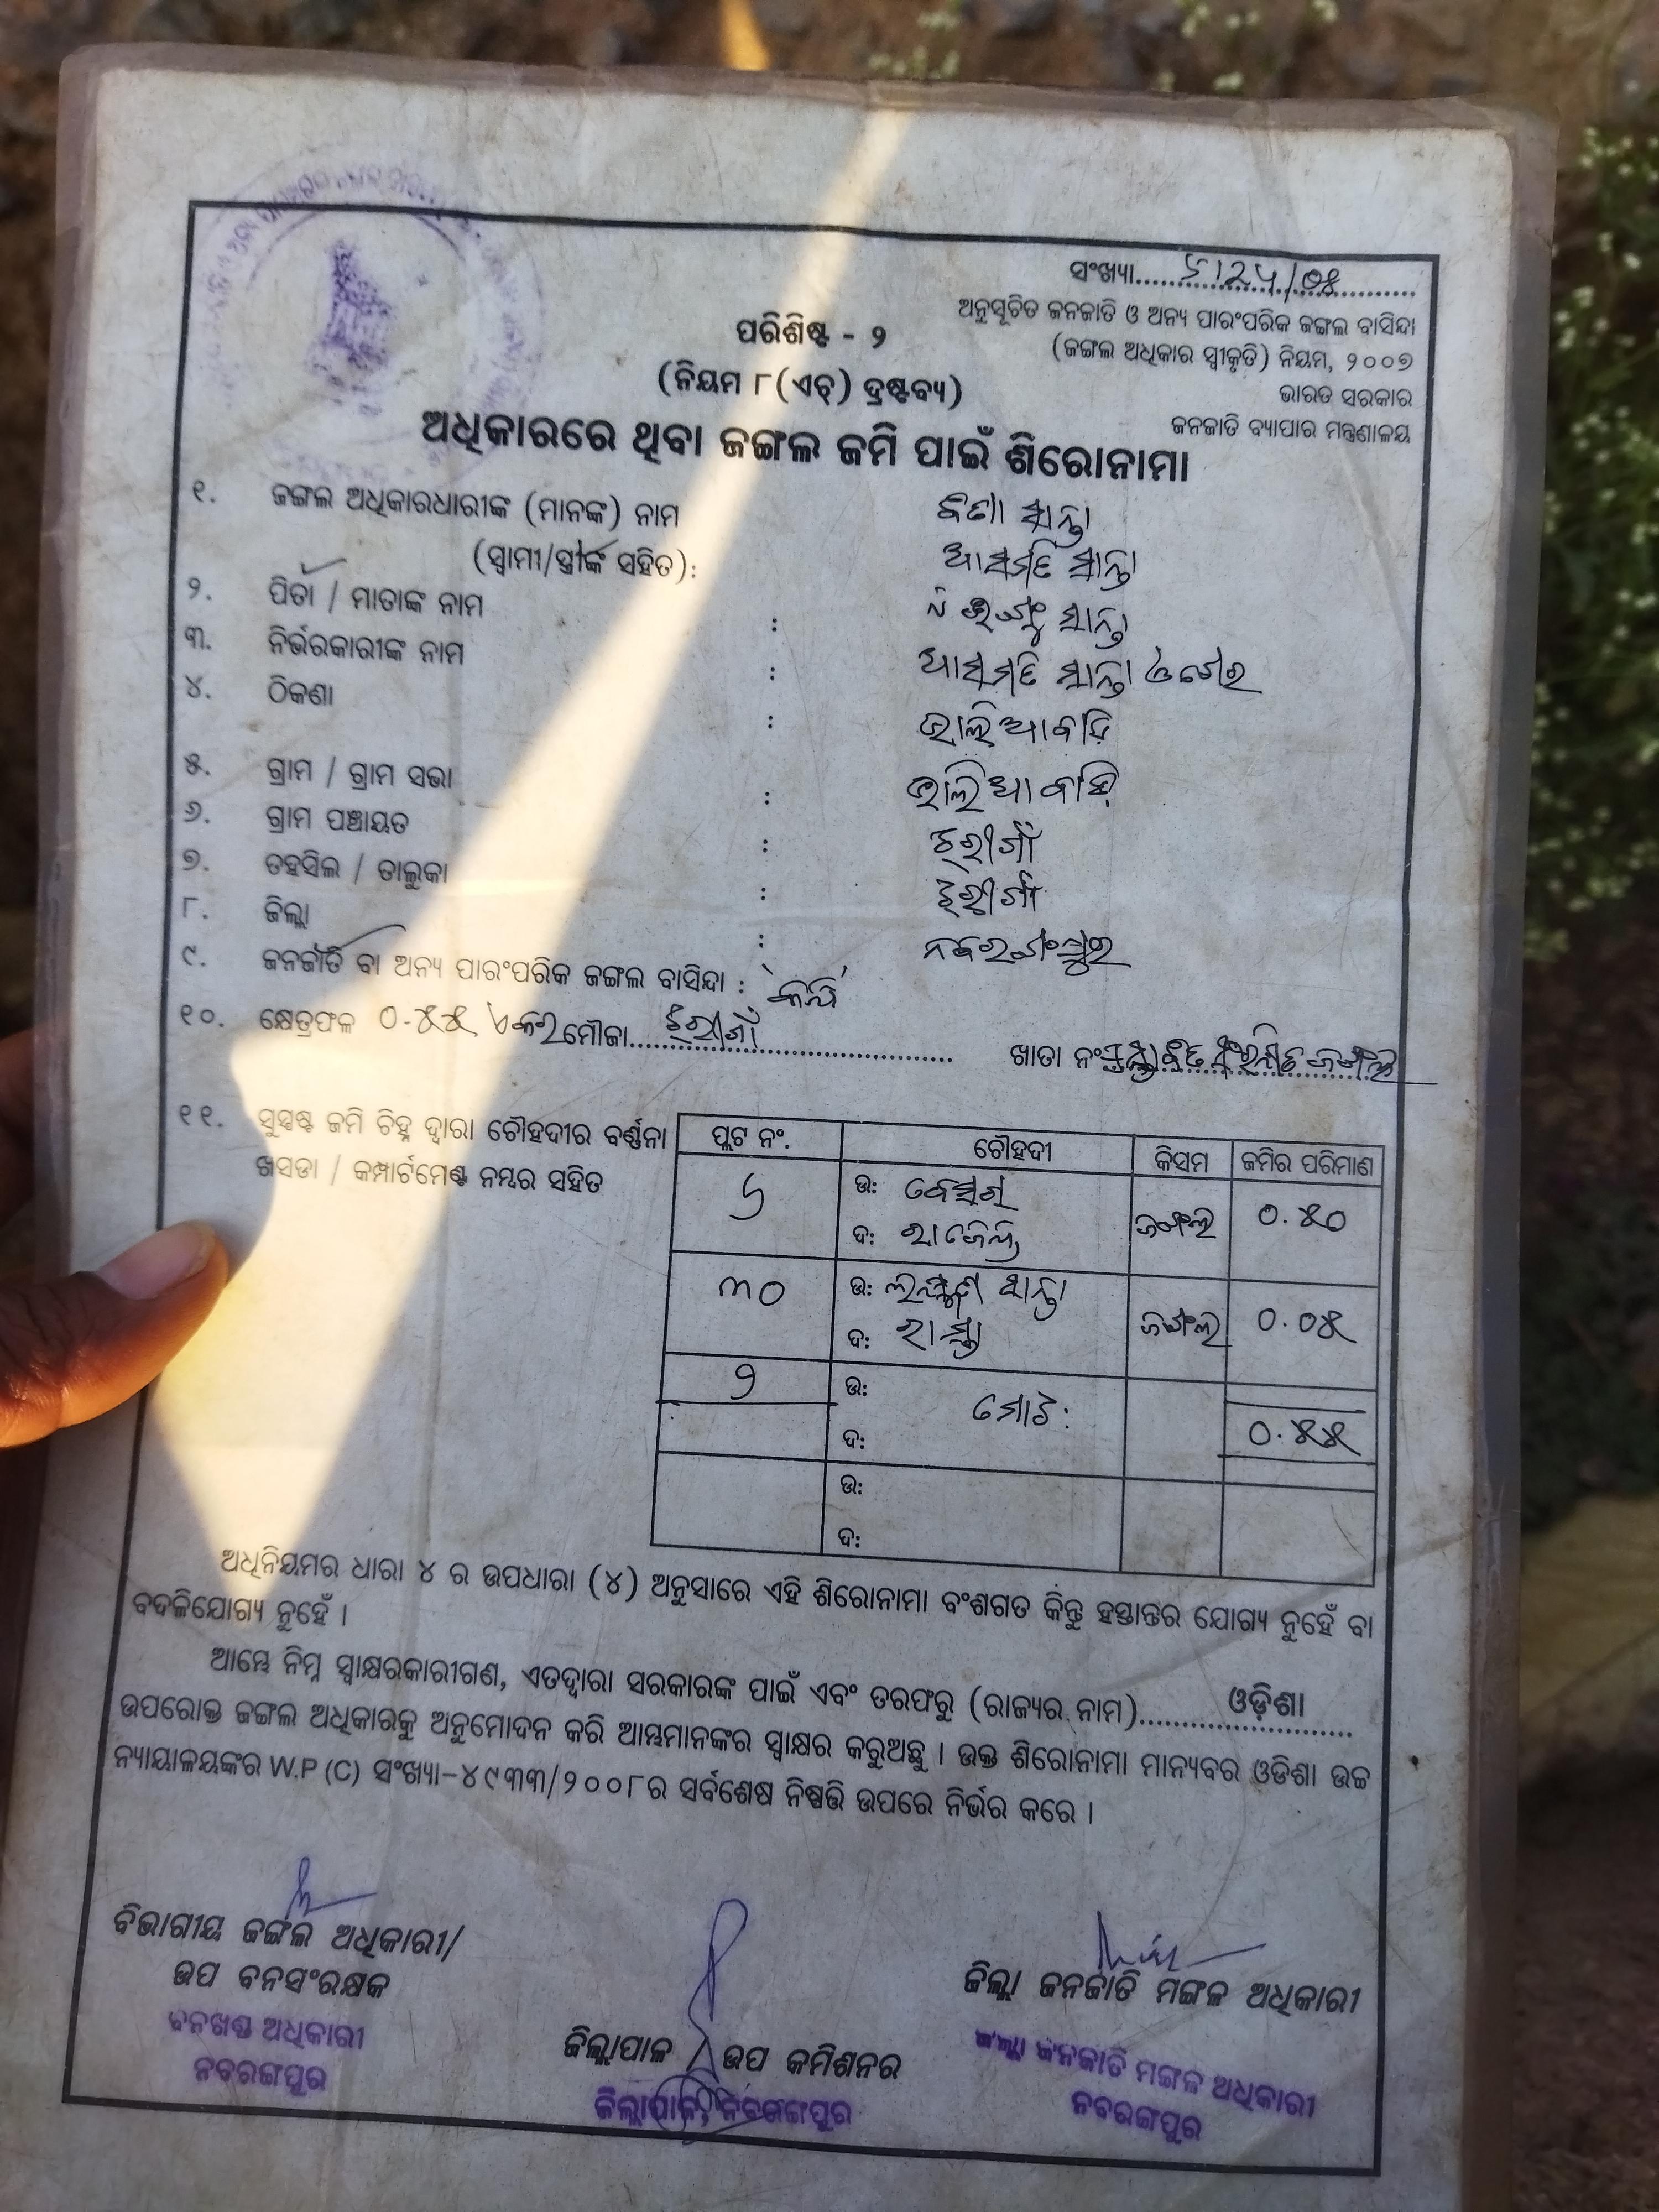 ସଂଖ୍ୟା
ଅନୁସୂଚିତ ଜନଜାତି ଓ ଅନ୍ୟ ପାରଂପରିକ ଜଙ୍ଗଲ ବାସିନ୍ଦା
(ଜଙ୍ଗଲ ଅଧିକାର ସ୍ୱୀକୃତି) ନିୟମ, ୨୦୦୭
ଭାରତ ସରକାର
ଜନଜାତି ବ୍ୟାପାର ମନ୍ତ୍ରଣାଳୟ
ପରିଶିଷ୍ଟ - ୨
(ନିୟମ ୮(ଏଚ୍) ଦ୍ରଷ୍ଟବ୍ୟ)
ଅଧିକାରରେ ଥିବା ଜଙ୍ଗଲ ଜମି ପାଇଁ ଶିରୋନାମା
୧. ଜଙ୍ଗଲ ଅଧିକାରଧାରୀଙ୍କ (ମାନଙ୍କ) ନାମ ସାନ୍ତା
(ସ୍ୱାମୀ/ସ୍ତ୍ରୀଙ୍କ ସହିତ): ଆସମତି ସାନ୍ତା
୨. ପିତା / ମାତାଙ୍କ ନାମ : ସାନ୍ତା
୩. ନିର୍ଭରକାରୀଙ୍କ ନାମ : ଆସମତି ସାନ୍ତା
୪. ଠିକଣା : ଭାଲିଆବାହି
୫. ଗ୍ରାମ / ଗ୍ରାମ ସଭା : ଭାଲିଆବାହି
୬. ଗ୍ରାମ ପଞ୍ଚାୟତ : ଝରୀଗାଁ
୭. ତହସିଲ / ତାଲୁକା : ଝରୀଗାଁ
୮. ଜିଲ୍ଲା : ନବରଙ୍ଗପୁର
୯. ଜନଜାତି ବା ଅନ୍ୟ ପାରଂପରିକ ଜଙ୍ଗଲ ବାସିନ୍ଦା :
୧୦. କ୍ଷେତ୍ରଫଳ ୦.୫୫ ଏକର ମୌଜା ଝରୀଗାଁ ଖାତା ନଂ ପ୍ରସ୍ତାବିତ ସଂରକ୍ଷିତ ଜଙ୍ଗଲ
୧୧. ସୁସ୍ପଷ୍ଟ ଜମି ଚିହ୍ନ ଦ୍ୱାରା ଚୌହଦୀର ବର୍ଣ୍ଣନା
ଖସଡା / କମ୍ପାର୍ଟମେଣ୍ଟ ନମ୍ବର ସହିତ
ପ୍ଲଟ ନଂ. ଚୌହଦୀ କିସମ ଜମିର ପରିମାଣ
୬ ଉ: ଜଙ୍ଗଲ ୦.୫୦
ଦ:
୩୦ ଉ: ଲକ୍ଷ୍ମଣ ସାନ୍ତା ଜଙ୍ଗଲ ୦.୦୫
ଦ: ରାସ୍ତା
୨ ଉ: ମୋଟ: ୦.୫୫
ଦ:
ଉ:
ଦ:
ଅଧିନିୟମର ଧାରା ୪ ର ଉପଧାରା (୪) ଅନୁସାରେ ଏହି ଶିରୋନାମା ବଂଶଗତ କିନ୍ତୁ ହସ୍ତାନ୍ତର ଯୋଗ୍ୟ ନୁହେଁ ବା
ବଦଳିଯୋଗ୍ୟ ନୁହେଁ ।
ଆମ୍ଭେ ନିମ୍ନ ସ୍ୱାକ୍ଷରକାରୀଗଣ, ଏତଦ୍ୱାରା ସରକାରଙ୍କ ପାଇଁ ଏବଂ ତରଫରୁ (ରାଜ୍ୟର ନାମ) ଓଡ଼ିଶା
ଉପରୋକ୍ତ ଜଙ୍ଗଲ ଅଧିକାରକୁ ଅନୁମୋଦନ କରି ଆମ୍ଭମାନଙ୍କର ସ୍ୱାକ୍ଷର କରୁଅଛୁ । ଉକ୍ତ ଶିରୋନାମା ମାନ୍ୟବର ଓଡିଶା ଉଚ୍ଚ
ନ୍ୟାୟାଳୟଙ୍କର W.P (C) ସଂଖ୍ୟା-୪୯୩୩/୨୦୦୮ର ସର୍ବଶେଷ ନିଷ୍ପତ୍ତି ଉପରେ ନିର୍ଭର କରେ ।
ବିଭାଗୀୟ ଜଙ୍ଗଲ ଅଧିକାରୀ/
ଉପ ବନସଂରକ୍ଷକ
ବନଖଣ୍ଡ ଅଧିକାରୀ
ନବରଙ୍ଗପୁର
ଜିଲ୍ଲାପାଳ / ଉପ କମିଶନର
ଜିଲ୍ଲାପାଳ, ନବରଙ୍ଗପୁର
ଜିଲ୍ଲା ଜନଜାତି ମଙ୍ଗଳ ଅଧିକାରୀ
ଜିଲ୍ଲା ଜନଜାତି ମଙ୍ଗଳ ଅଧିକାରୀ
ନବରଙ୍ଗପୁର